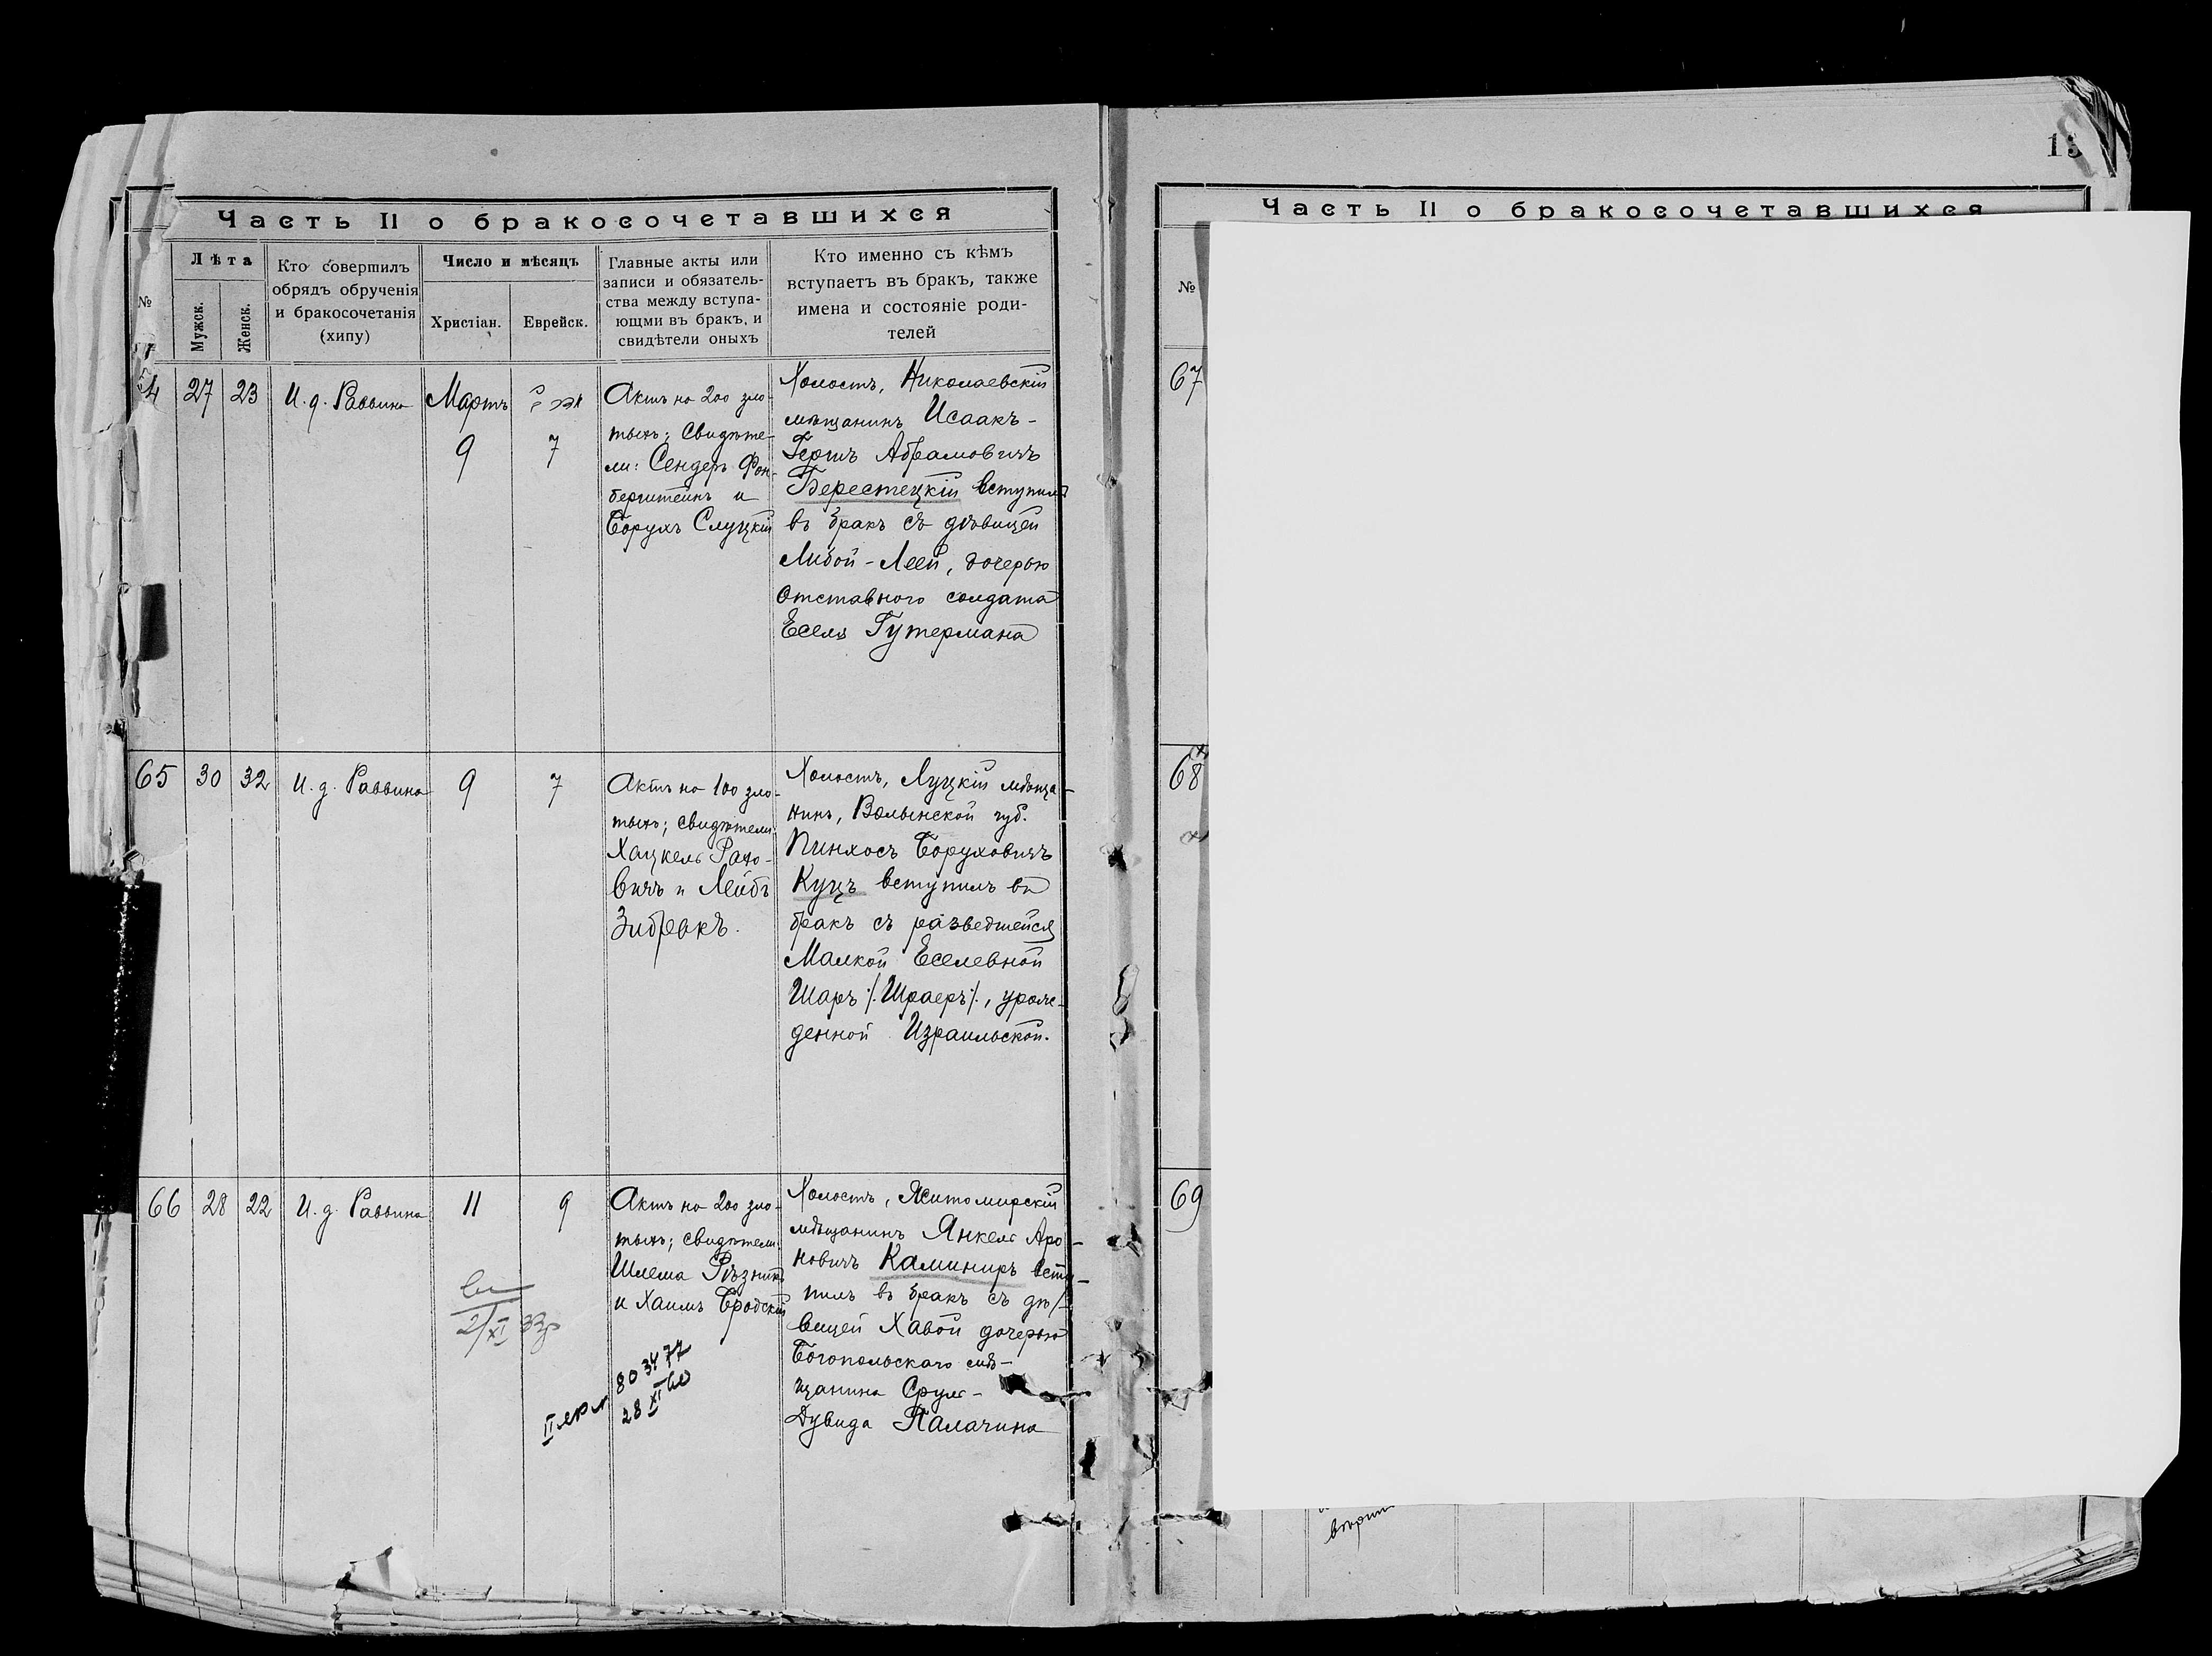 13
Часть II о бракосочетавшихся
№
Лѣта
Мужск.
Женск.
Кто совершилъ
обрядъ обрученія
и бракосочетанія
(хипу)
Число и мѣсяцъ
Христіан.
Еврейск.
Главные акты или
записи и обязатель-
ства между вступа-
ющми въ бракъ, и
свидѣтели оныхъ
Кто именно съ кѣмъ
вступаетъ въ бракъ, также
имена и состояніе роди-
телей
4
27
23
И. д. Раввина
Мартъ
9
7
Актъ на 200 зло-
тыхъ; Свидѣте-
ли: Сендеръ Фон-
берштейнъ и
Борухъ Слуцкій
Холостъ, Николаевскій
мѣщанинъ Исаакъ-
Гершъ Абрамовичъ
Берестецкій вступилъ
въ бракъ съ дѣвицей
Либой-Леей, дочерью
отставного солдата
Еселя Гутермана
65
30
32
И. д. Раввина
9
7
Актъ на 100 зло-
тыхъ; свидѣтели
Хацкель
вичъ и Лейбъ
Холостъ, Луцкій мѣща-
нинъ, Волынской губ.
Пинхосъ Боруховичъ
Куцъ вступилъ въ
бракъ съ разведшейся
Малкой Еселевной
Шаръ /. Шраеръ /., урож-
денной Израильской.
66
28
22
И. д. Раввина
11
9
Актъ на 200 зло-
тыхъ; свидѣтели
Шлема Рѣзникъ
и Хаимъ Бродскій
2/XI 33
II экз
803477
28 XI 60
Холостъ, Житомирскій
мѣщанинъ Янкель Аро-
новичъ Каминиръ всту-
пилъ въ бракъ съ дѣ-
вицей Хавой дочерью
Богопольскаго мѣ-
щанина Сруль-
Дувида Палачина
Часть II о бракосочетавшихся
№
67
68
69